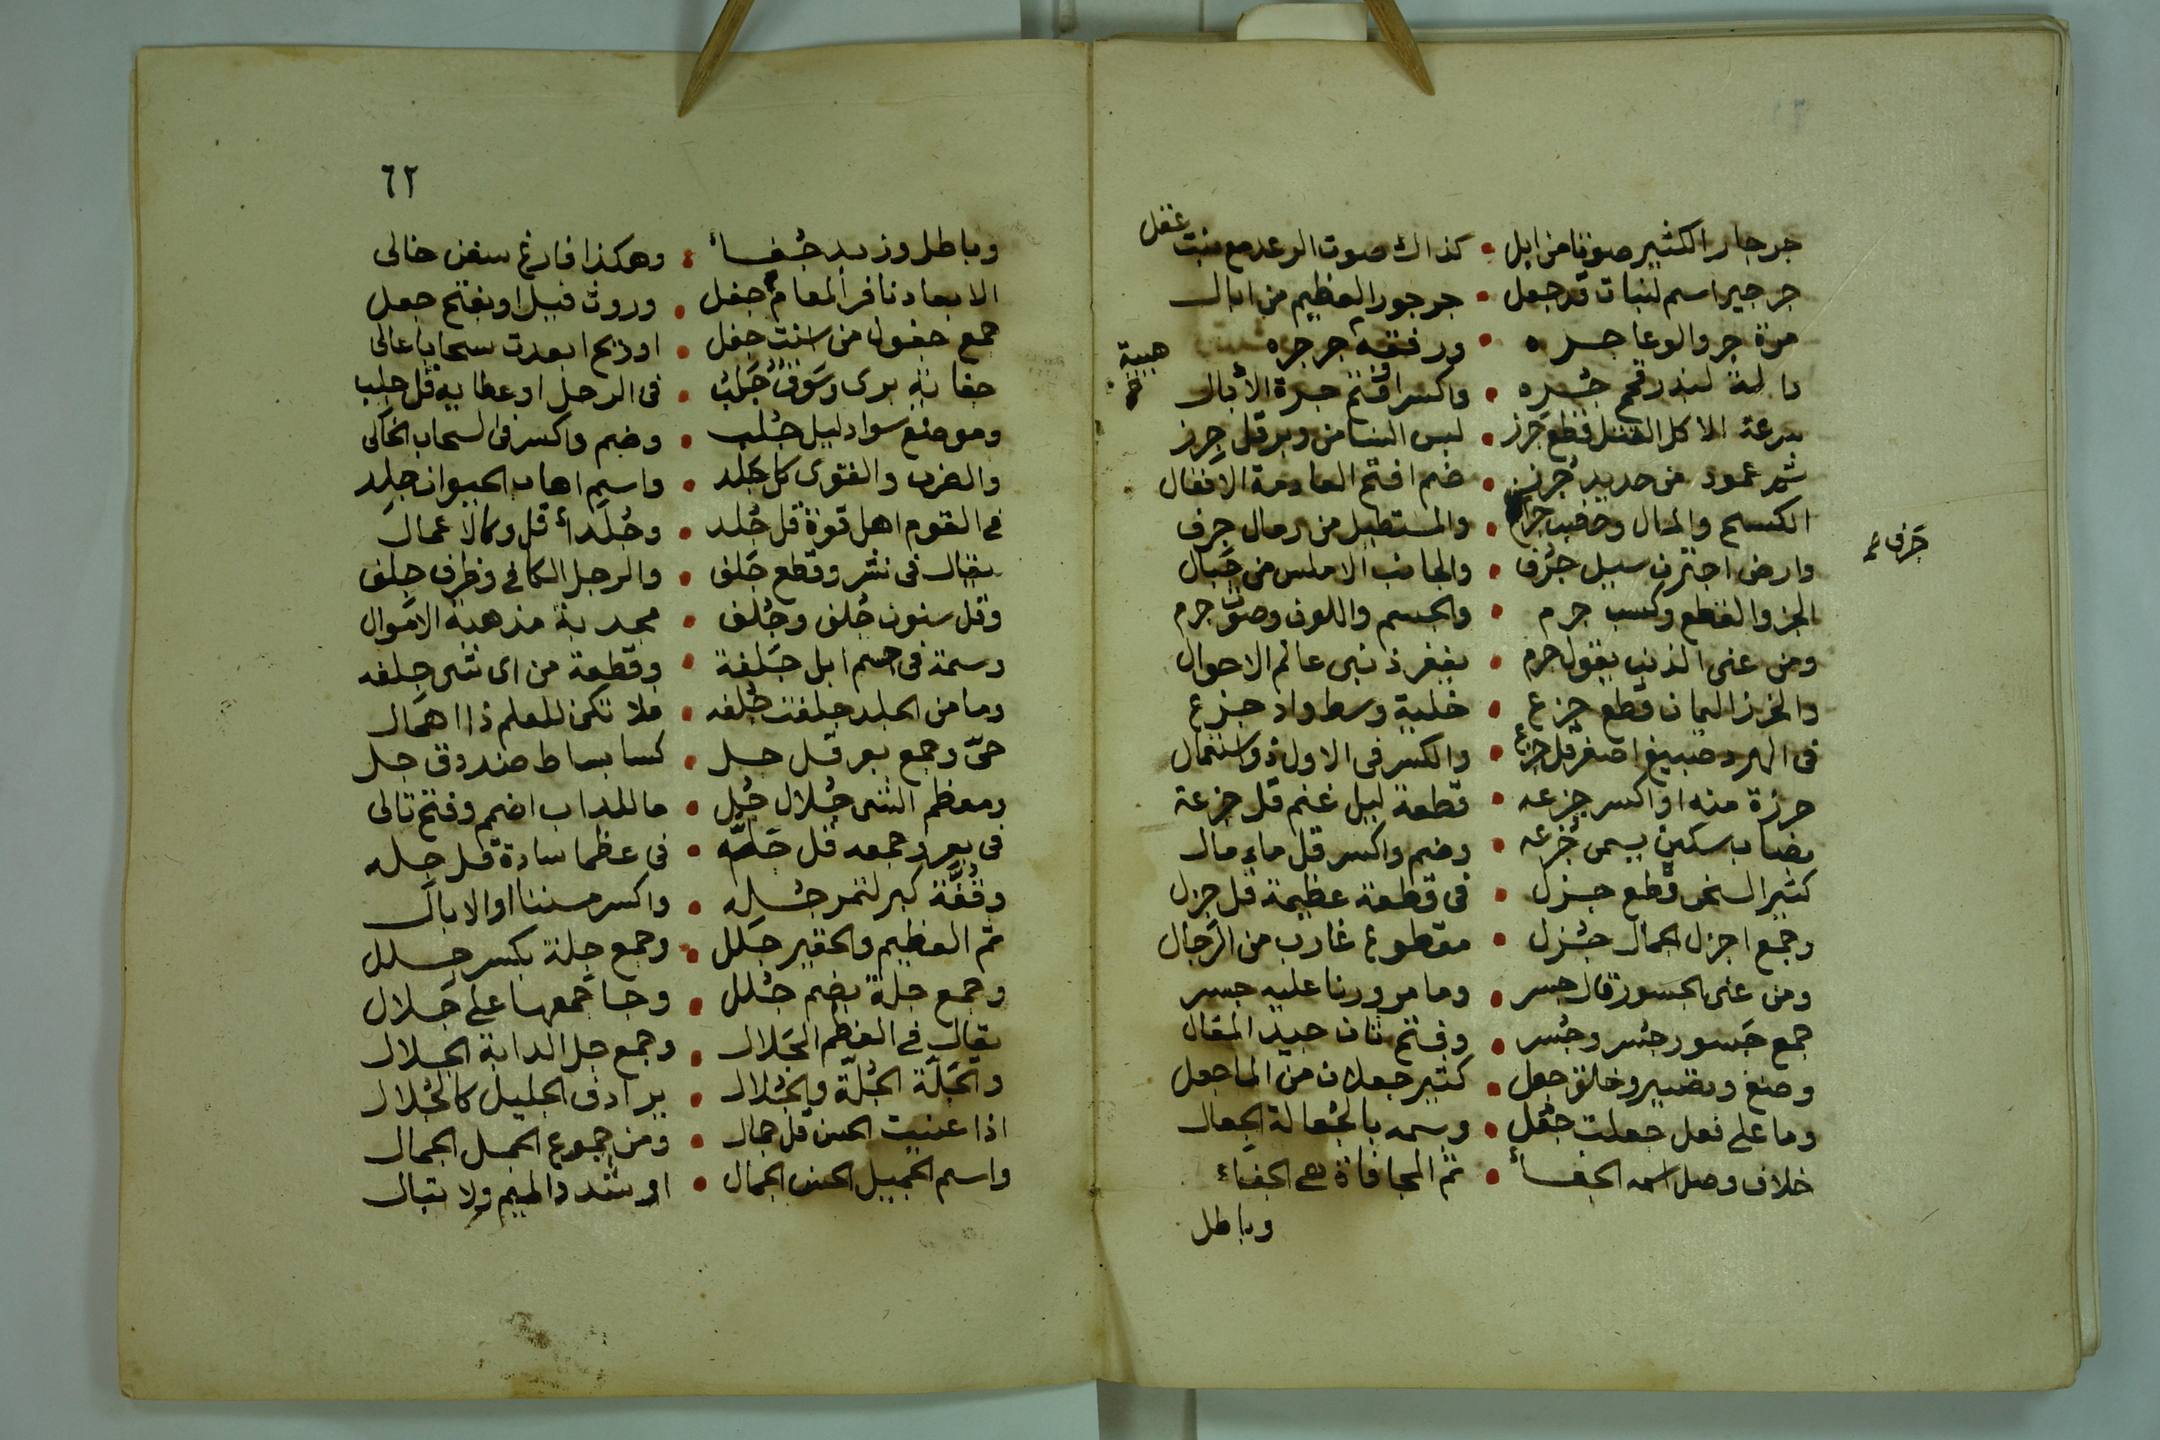 جرجار الكثير صوتا من ابل • كذاك صوت الرعد مع نبت غفل
جرجير اسم لنبات قد جعل • جرجور العظيم من ابال
مرة جر والوعا جره • ورفقة جرجره
لبذر قمح جُره • واكسر افتح جرة الأبال هيبة
سرعة الاكل القتل قطع جَرز • لبس النسا من وبر قل جِرز
ثم عمود من حديد جُرز • ضم افتح العادمة الاقفال
الكسح والمال وخصب • والمستطيل من رمال جرف جَرف
وارض اجترف سيل جُرُف • والجانب الاملس من جبال
الجز والقطع وكسب جرم • والجسم واللون وصوت جرم
ومن عنى الذنب يقول جرم • يغفر ذنبى عالم الاحوال
والخرز اليمان قطع جزع • خلية وسط واد جزع
فى الهرد صبيغ اصفر قل جزع • والكسر فى الاول ذو استعمال
خرزة منه او اكسر جزعه • قطعة ليل غنم قل جزعة
نصاب سكين يسمى جُزعه • وضم واكسر قل ماء مال
كثير الشحم قطع جزل • فى قطعة عظيمة قل جزل
وجمع اجزل الجمال جُزل • مقطوع غارب من الرجال
ومن عنى الجسور قال جسر • وما مرورنا عليه جسر
جمع جَسور جُسر وجُسر • وفتح ثان جيد المقال
وصنع وتصيير وخلق جعل • كثير جعلان من الما جعل
وما على فعل جعلت جُعْل • وسمه بالجُعالة الجعال
خلاف وصل اسمه الجفاء • ثم المجافاة هى الجفاء
وباطل
٦٢
وباطل وزبد جُفاء • وهكذا فارغ سفن خالى
الابعاد نافر النعام جفل • وروث فيل او بفتح جعل
جمع جفول من اسنت جفل • او ريح ابعدت سحابا عالى
جنا به يرى وسَوقٌ جَلبُ • فى الرحل او عطا به قل جلب
وموضع سواد ليل جُلب • وضم واكسر فى السحاب الخالى
والضرب والقوى كل جَلد • واسم اهاب الحيوان جِلد
فى القوم اهل قوة قل جُلد • وجُلَداء قل وكالاعمال
يقال فى نثر وقطع جَلف • والرجل الكافى وظرف جِلف
وقل سنون جُلف وجُلف • مجدبة مذهبة الاموال
وسمة فى جسم ابل جَلفة • وقطعة من اى شى جلفه
وما من الجلد جلفت جُلفه • فلا تكن للعلم ذا اهمال
حىّ وجمع بعر قل جل • كسا بساط صندوق جل
ومعظم الشى جُلال جُل • ما للداب اضم وفتح تالى
فى بعر وجمعه قل جَلّه • فى عظما سادة قل جله
وقُفّة كبر لتمر جُله • واكسر مسننا او الابال
ثم العظيم والحقير جَلل • وجمع جلة بكسر جِلل
وجمع جلة بضم جُلل • وجا جمعها على جلال
يقال فى العظم الجَلال • وجمع جل الدابة الجلال
والجَلّة الجُلّة والجُلال • يرادف الجليل كالجُلال
اذا عنيت الحسن قل جمال • ومن جموع الجمل الجمال
واسم الجميل الحسن الجمال • او شدد الميم ولا تبال